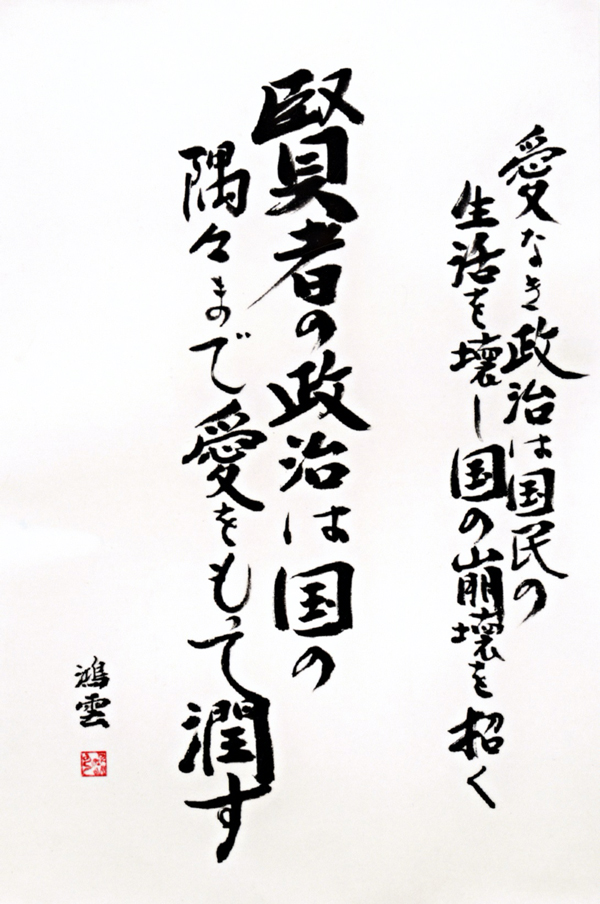 愛なき政治は国民の
生活を壊し国の崩壊を招く
賢者の政治は国の
隅々まで愛をもって潤す
鴻雲